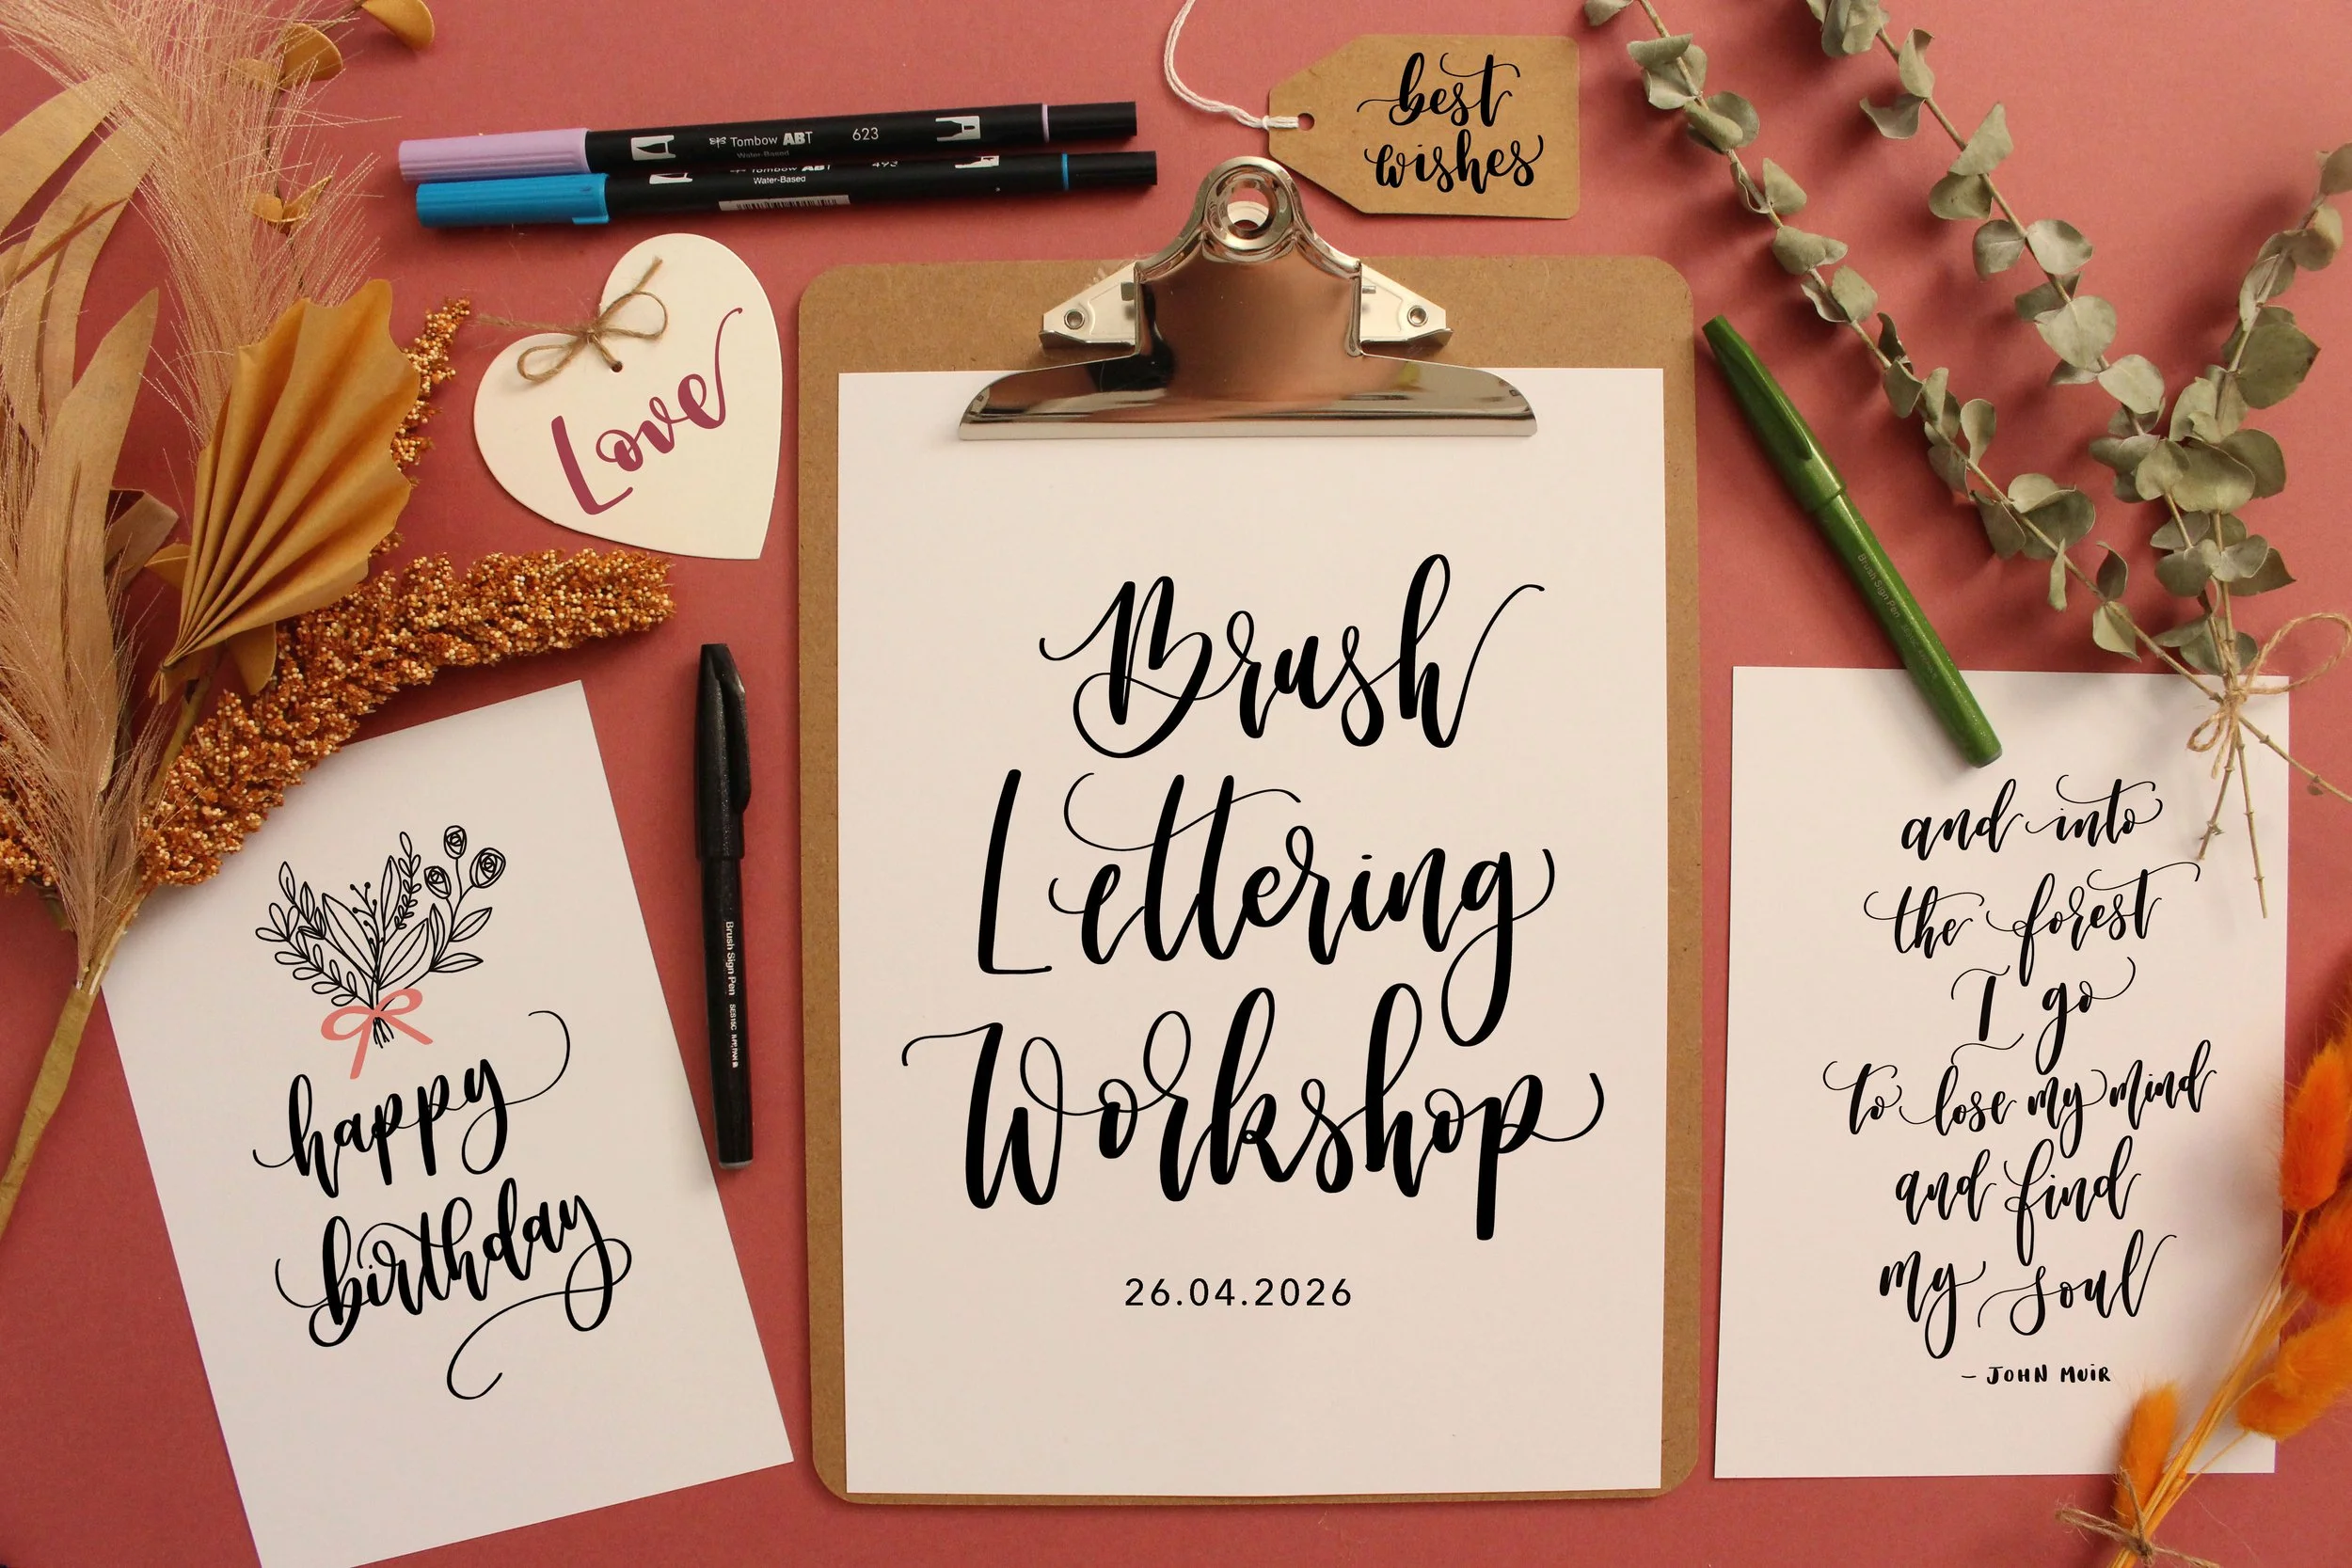 Tombow ABT 623
Water-Based
Tombow ABT 493
Water-Based
best
wishes
Love
Brush
Lettering
Workshop
26.04.2026
Brush Sign Pen
Brush Sign Pen
happy
birthday
and into
the forest
I go
to lose my mind
and find
my soul
– JOHN MUIR